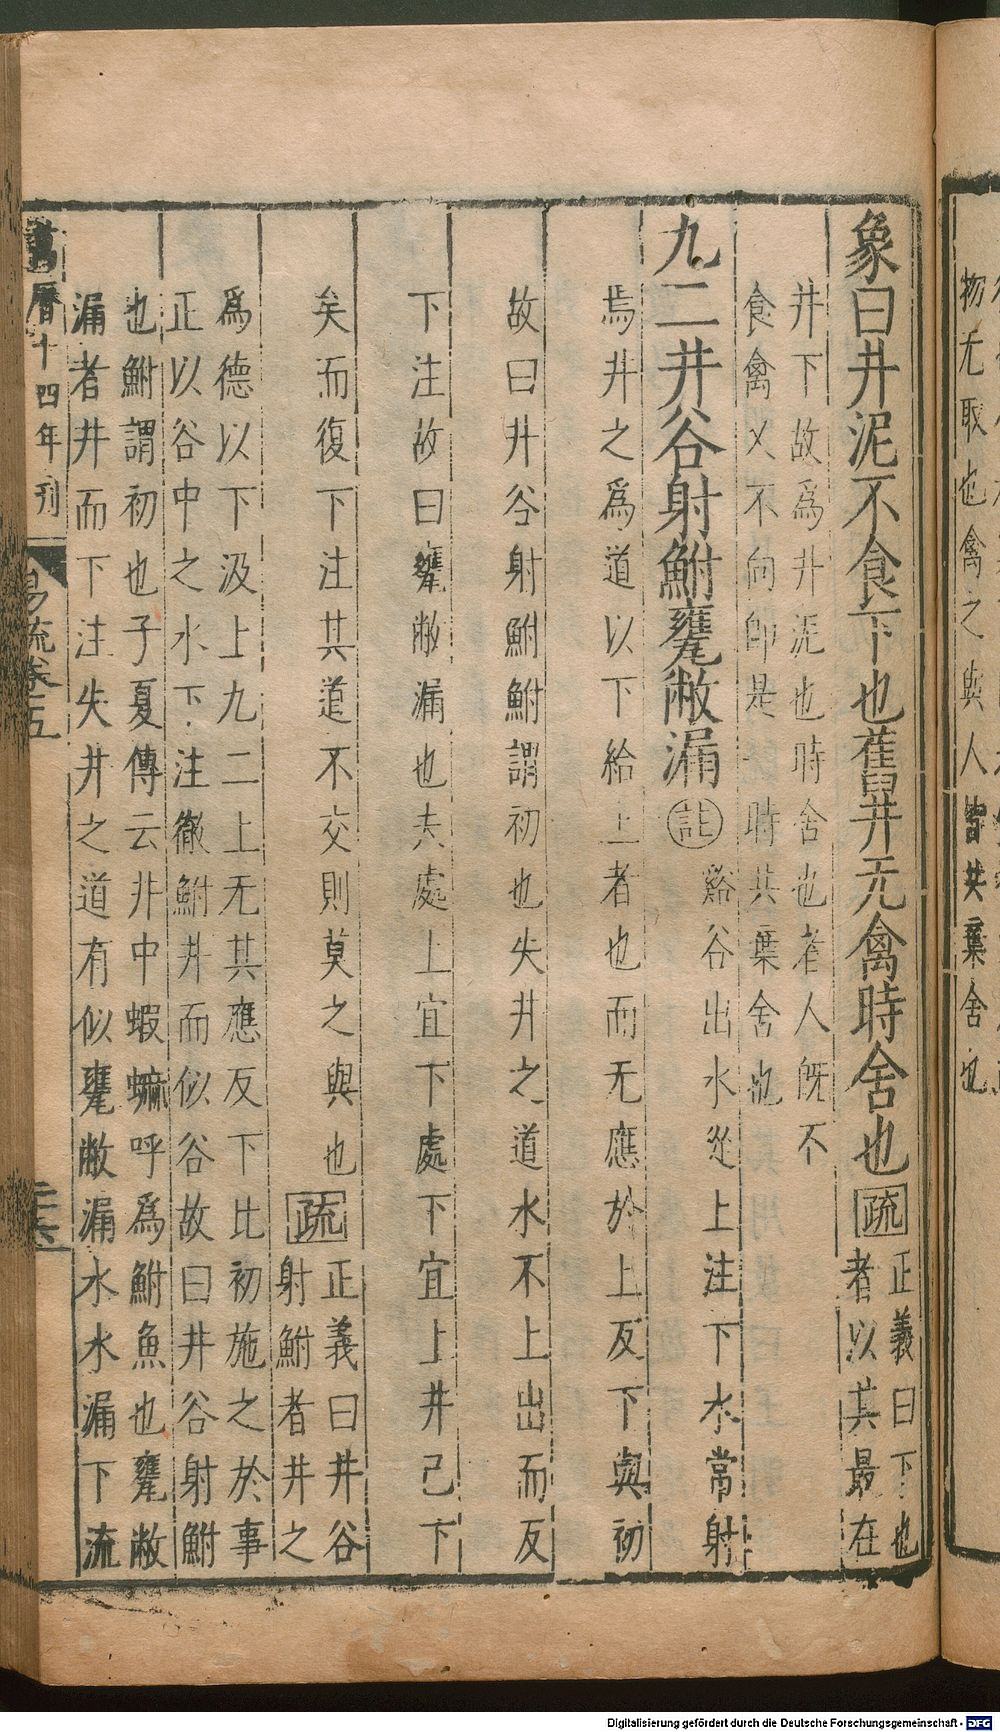 物无取也禽之與人皆共棄舍也
象曰井泥不食下也舊井无禽時舍也 疏 正義曰下也
者以其最在
井下故爲井泥也時舍也者人旣不
食禽又不向卽是一時共棄舍也
九二井谷射鮒甕敝漏 註 谿谷出水從上注下水常射
焉井之爲道以下給上者也而无應於上反下與初
故曰井谷射鮒鮒謂初也失井之道水不上出而反
下注故曰甕敝漏也夫處上宜下處下宜上井已下
矣而復下注其道不交則莫之與也 疏 正義曰井谷
射鮒者井之
爲德以下汲上九二上无其應反下比初施之於事
正以谷中之水下注徹鮒井而似谷故曰井谷射鮒
也鮒謂初也子夏傳云非中蝦蟆呼爲鮒魚也甕敝
漏者井而下注失井之道有似甕敝漏水水漏下流
萬曆十四年刊
易疏卷五
二十六
Digitalisierung gefördert durch die Deutsche Forschungsgemeinschaft - DFG